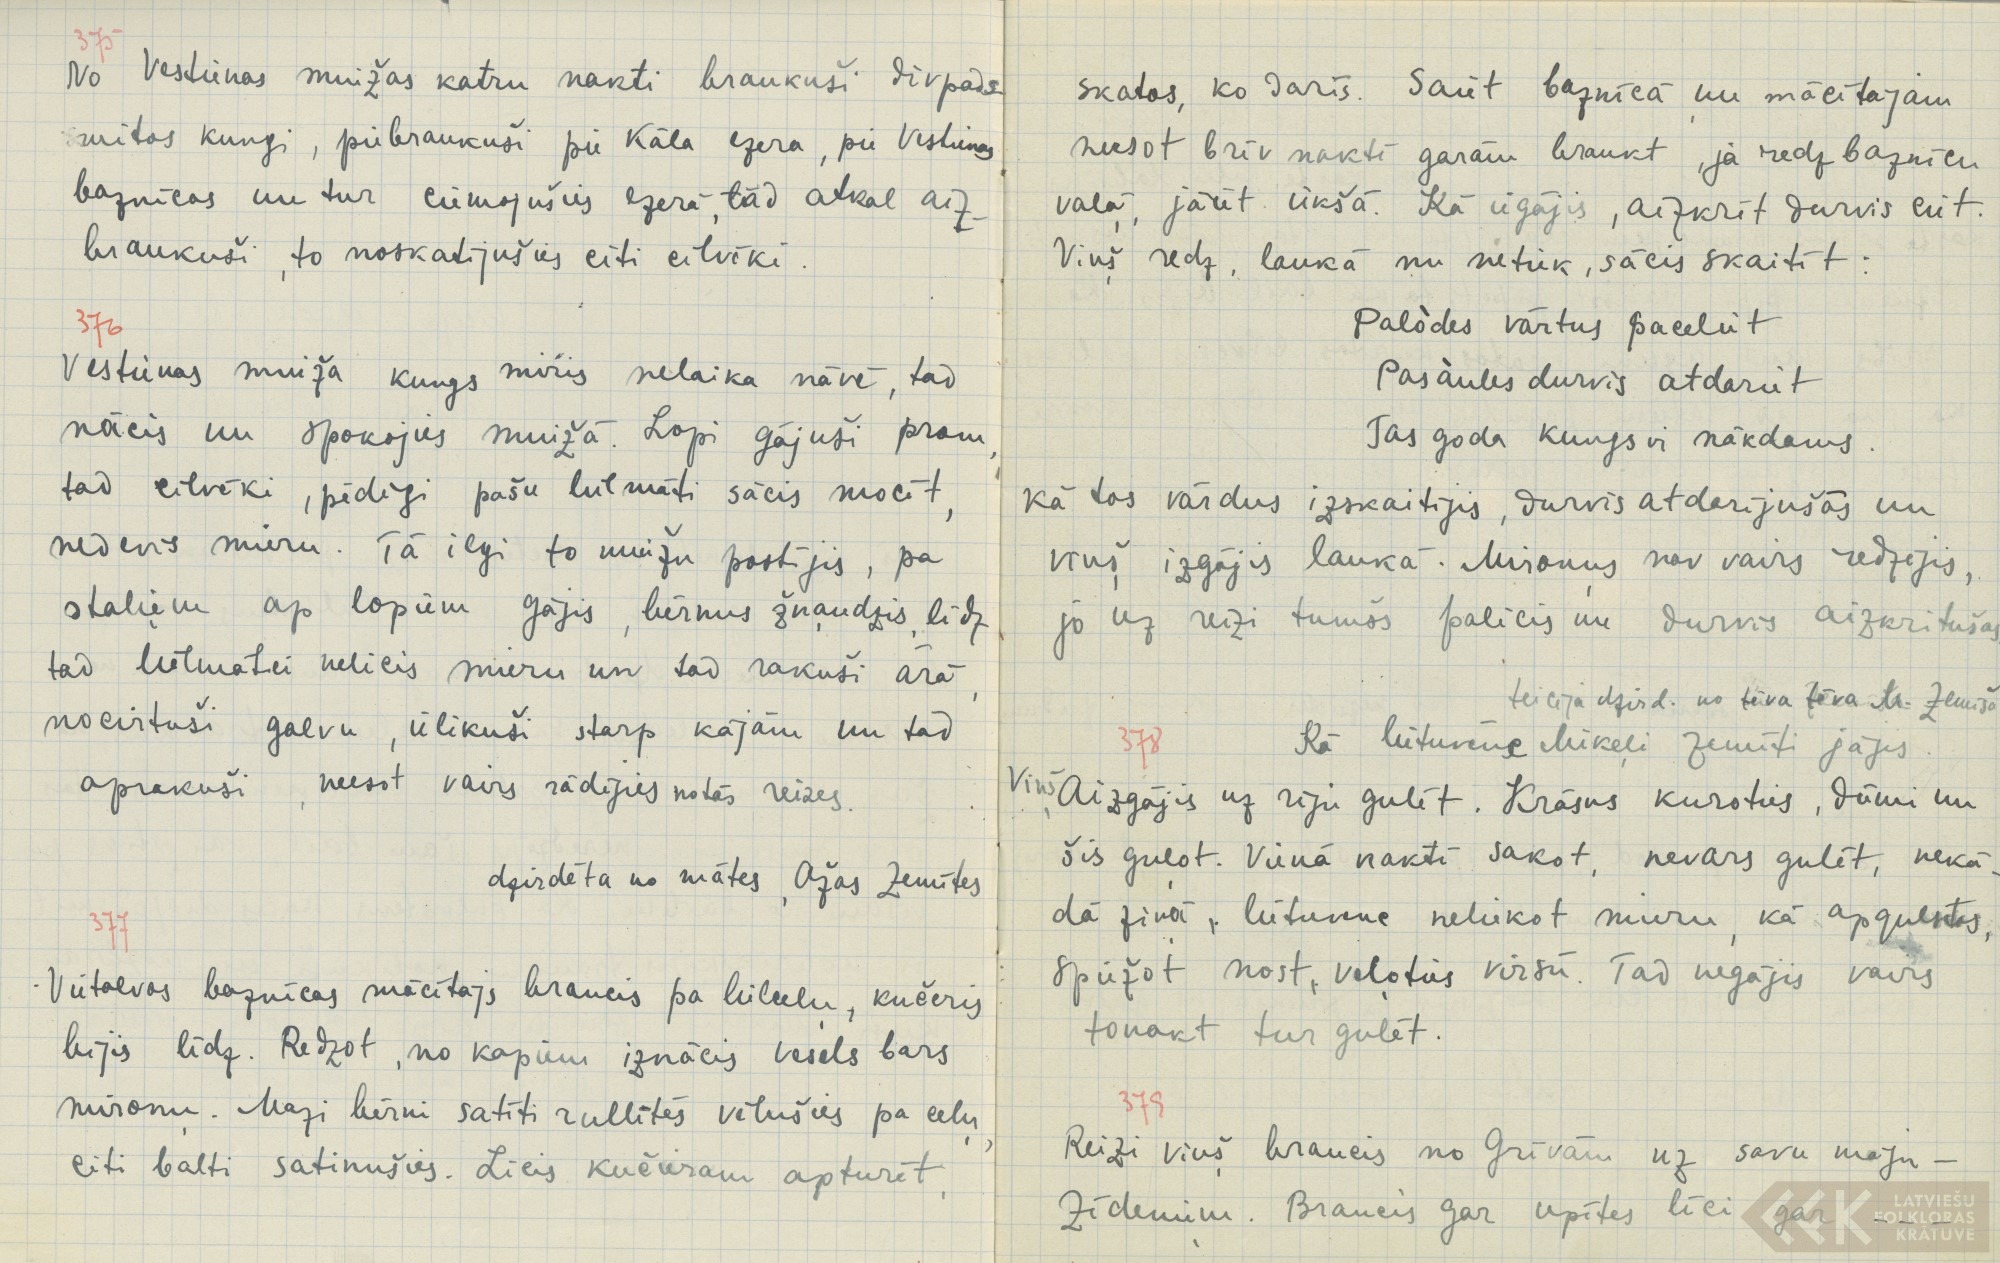 375
No Vestienas muižas katru nakti braukuši divpads-
mitos kungi, piebraukuši pie Kāla ezera, pie Vestienas
baznīcas un tur ciemojušies ezerā, tad atkal aiz-
braukuši, to noskatijušies citi cilvēki.
376
Vestienas muiža kungs miris nelaika nāvē, tad
nācis un spokojies muižā. Lopi gājuši prom,
tad cilvēki, pēdīgi pašu lielmāti sācis mocīt,
nedevis mieru. Tā ilgi to muižu postījis, pa
staļļiem ap lopiem gājis, bērnus žņaudzis, līdz
tad lielmātei nelicis mieru un tad rakuši ārā,
nocirtuši galvu, ielikuši starp kājām un tad
aprakuši, neesot vairs rādījies no tās reizes.
dzirdēta no mātes, Ažas Zemītes
377
Vietalvas baznīcas mācītājs braucis pa lielceļu, kučeris
bijis līdz. Redzot, no kapiem iznācis vesels bars
mironu. Mazi bērni satīti rullītēs vēlušies pa ceļu,
citi balti satinušies. Licis kučieram apturēt,
skatās, ko darīs. Saiet baznīcā un mācītājam
neesot brīv naktī garām braukt, ja redz baznīcu
vaļā, jāiet iekšā. Kā iegājis, aizkrīt durvis ciet.
Viņš redz, laukā nu netiek, sācis skaitīt:
Palòdes vārtus paceliet
Pasàules durvis atdariet
Tas goda kungs vi nākdams.
kā tos vārdus izskaitījis, durvis atdarījušās un
viņš izgājis laukā. Mironus nav vairs redzējis,
jo uz reizi tumšs palicis un durvis aizkritušas
teicēja dzird. no tēva tēva M. Zemīša
378
Kā lietuvēne Miķeļi Zemīti jājis.
Viņš Aizgājis uz riju gulēt. Krāsns kuroties, dūmi un
šis guļot. Vienā naktī sakot, nevars gulēt, nekā-
dā ziņā, lietuvene neliekot mieru, kā apguļoties,
spiežot nost, veļoties virsū. Tad negājis vairs
tonakt tur gulēt.
379
Reizi viņš braucis no Grīvām uz savu māju –
Zīdeniem. Braucis gar upītes līci gar - - -
LATVIEŠU
FOLKLORAS
KRĀTUVE